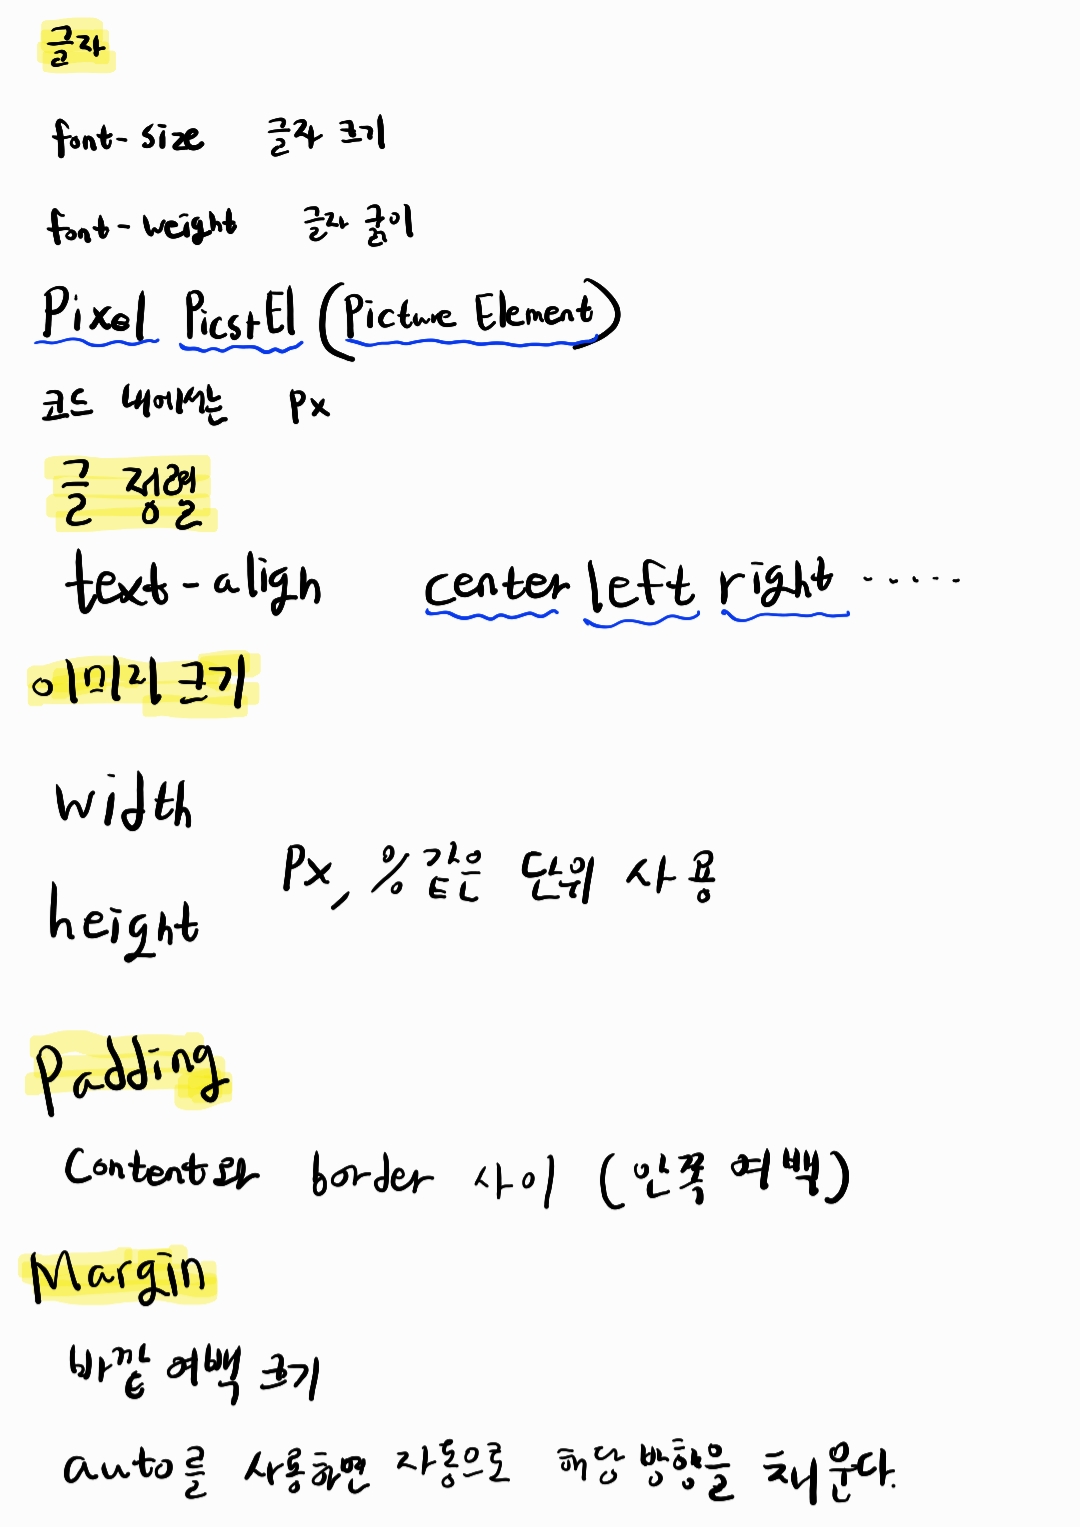 글자
font-size 글자 크기
font-weight 글자 굵기
Pixel PicstEl (Picture Element)
코드 내에서는 Px
글 정렬
text-align center left right .....
이미지 크기
width
Px, % 같은 단위 사용
height
Padding
Content와 border 사이 (안쪽 여백)
Margin
바깥 여백 크기
auto를 사용하면 자동으로 해당 방향을 채운다.